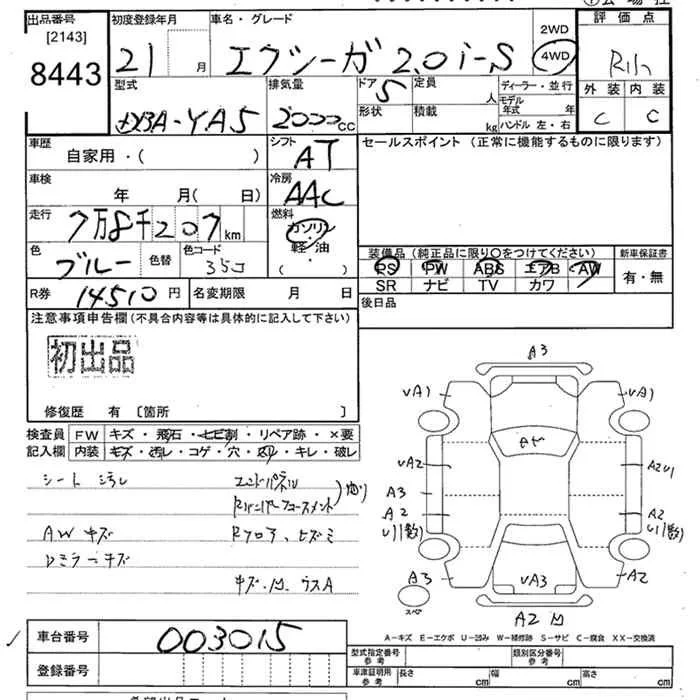 出品番号
[2143]
8443
初度登録年月
21 月
車名・グレード
エクシーガ 2.0i-S
2WD
4WD
評価点
外装 内装
C C
型式
YA5
排気量
2000cc
ドア
5
形状
定員
人
積載
kg
ディーラー・並行
モデル年式 年
ハンドル 左・右
車歴
自家用・( )
シフト
AT
セールスポイント (正常に機能するものに限ります)
車検
年 月( 日)
冷房
AAC
走行
7万8千207km
燃料
ガソリン
軽・油
・( )
色
ブルー
色替
色コード
35J
装備品 (純正品に限り○をつけてください)
PS PW ABS エアB AW
SR ナビ TV カワ
新車保証書
有・無
R券 14510円
名変期限 月 日
後日品
注意事項申告欄(不具合内容等は具体的に記入して下さい)
初出品
修復歴 有 [箇所 ]
検査員 FW キズ・飛石・七ビ割・リペア跡・×要
記入欄 内装 キズ・汚レ・コゲ・穴・スリ・キレ・破レ
シート 汚レ
エンドパネル
AW キズ
Rフロア、ヒズミ
Dミラーキズ
キズ・凹、ウスA
A3
VA1
VA1
VA2
A3
A2
U1(数)
A2U1
A2
U1(数)
A3
VA3
A2
スペア
A2凹
A-キズ E-エクボ U-凹み W-補修跡 S-サビ C-腐食 XX-交換済
車台番号 003015
登録番号
型式指定番号 参考
類別区分番号 参考
車庫証明用 参考 長さ cm 幅 cm 高さ cm